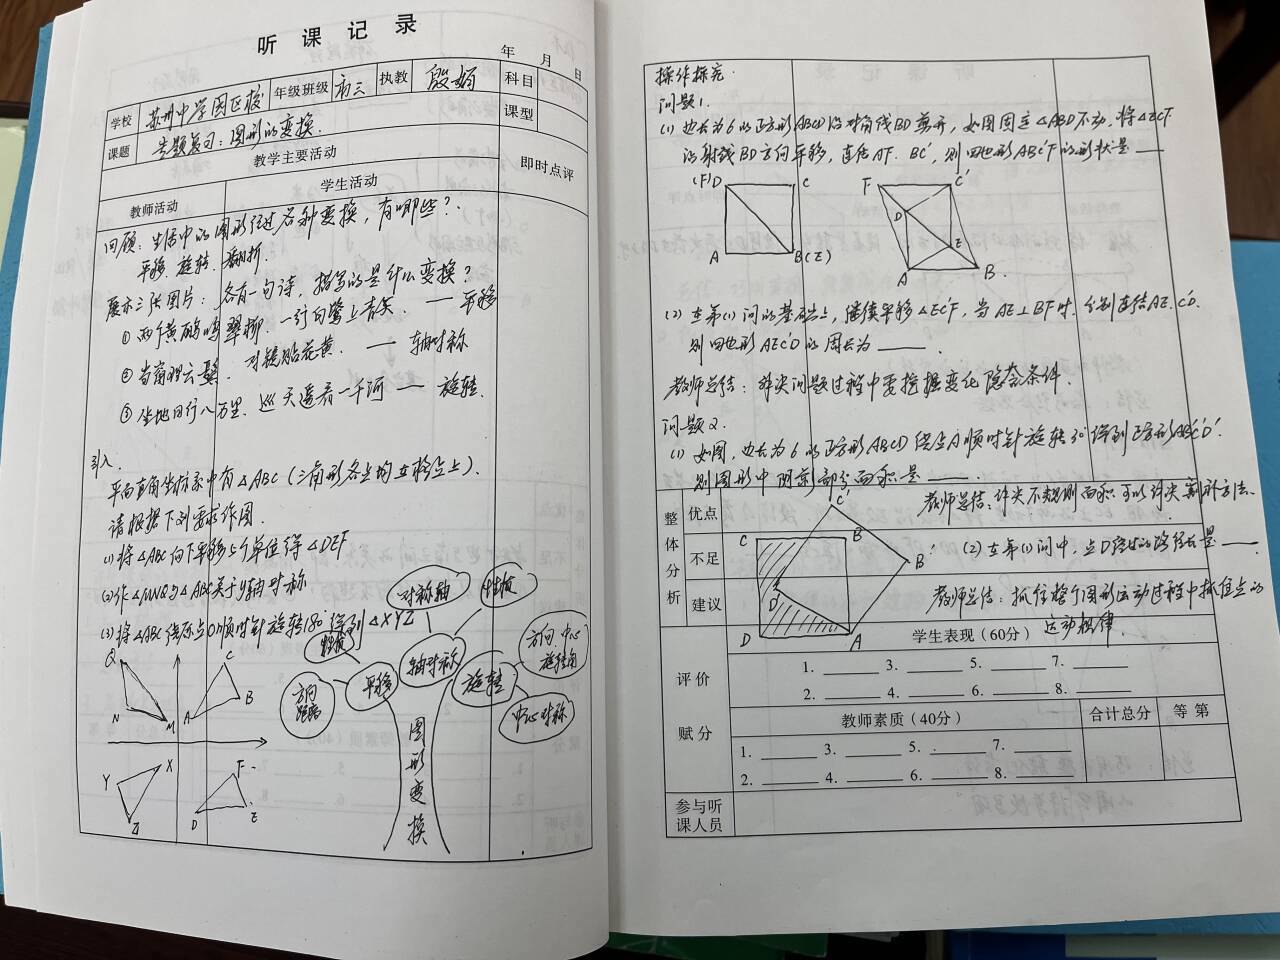 听课记录
年 月 日
学校 苏州中学园区校 年级班级 初三 执教 殷娟 科目
课题 专题复习：图形的变换. 课型
教学主要活动 即时点评
教师活动 学生活动
回顾：生活中的图形经过各种变换，有哪些？
平移. 旋转. 翻折.
展示三张图片：各有一句诗，描写的是什么变换？
① 两个黄鹂鸣翠柳. 一行白鹭上青天. — 平移
② 当窗理云鬓. 对镜贴花黄. — 轴对称
③ 坐地日行八万里. 巡天遥看一千河 — 旋转.
引入.
平面直角坐标系中有△ABC（三角形各点均在格点上）.
请根据下列要求作图.
(1) 将△ABC向下平移5个单位得△DEF
(2) 作△MNQ与△ABC关于y轴对称
(3) 将△ABC绕原点O顺时针旋转180°得到△XYZ
Q C B N M A
X Y Z F D E
对称轴 性质
性质 轴对称 方向 中心 旋转角
方向 距离 平移 旋转 中心对称
图形变换
操作探究.
问题1.
(1) 边长为6的正方形ABCD沿对角线BD剪开，如图固定△ABD不动，将△ECF
沿射线BD方向平移，连结AF. BC′，则四边形ABC′F的形状是
(F)D C F C′
D E
A B(E) A B.
(2) 在第(1)问的基础上，继续平移△EC′F，当AE⊥BF时，分别连结AE. C′D.
则四边形AEC′D的周长为 .
教师总结：解决问题过程中要挖掘变化隐含条件.
问题2.
(1) 如图，边长为6的正方形ABCD绕点A顺时针旋转30°得到正方形AB′C′D′.
则图形中阴影部分面积是 .
教师总结：解决不规则面积可以解决割补方法.
C′ C B B′ D′ D A
(2) 在第(1)问中，点D经过的路径长是 .
教师总结：抓住整个图形运动过程中抓住点的
运动规律.
整体分析 优点 不足 建议
评价赋分
学生表现（60分）
1. 3. 5. 7.
2. 4. 6. 8.
教师素质（40分） 合计总分 等第
1. 3. 5. 7.
2. 4. 6. 8.
参与听课人员